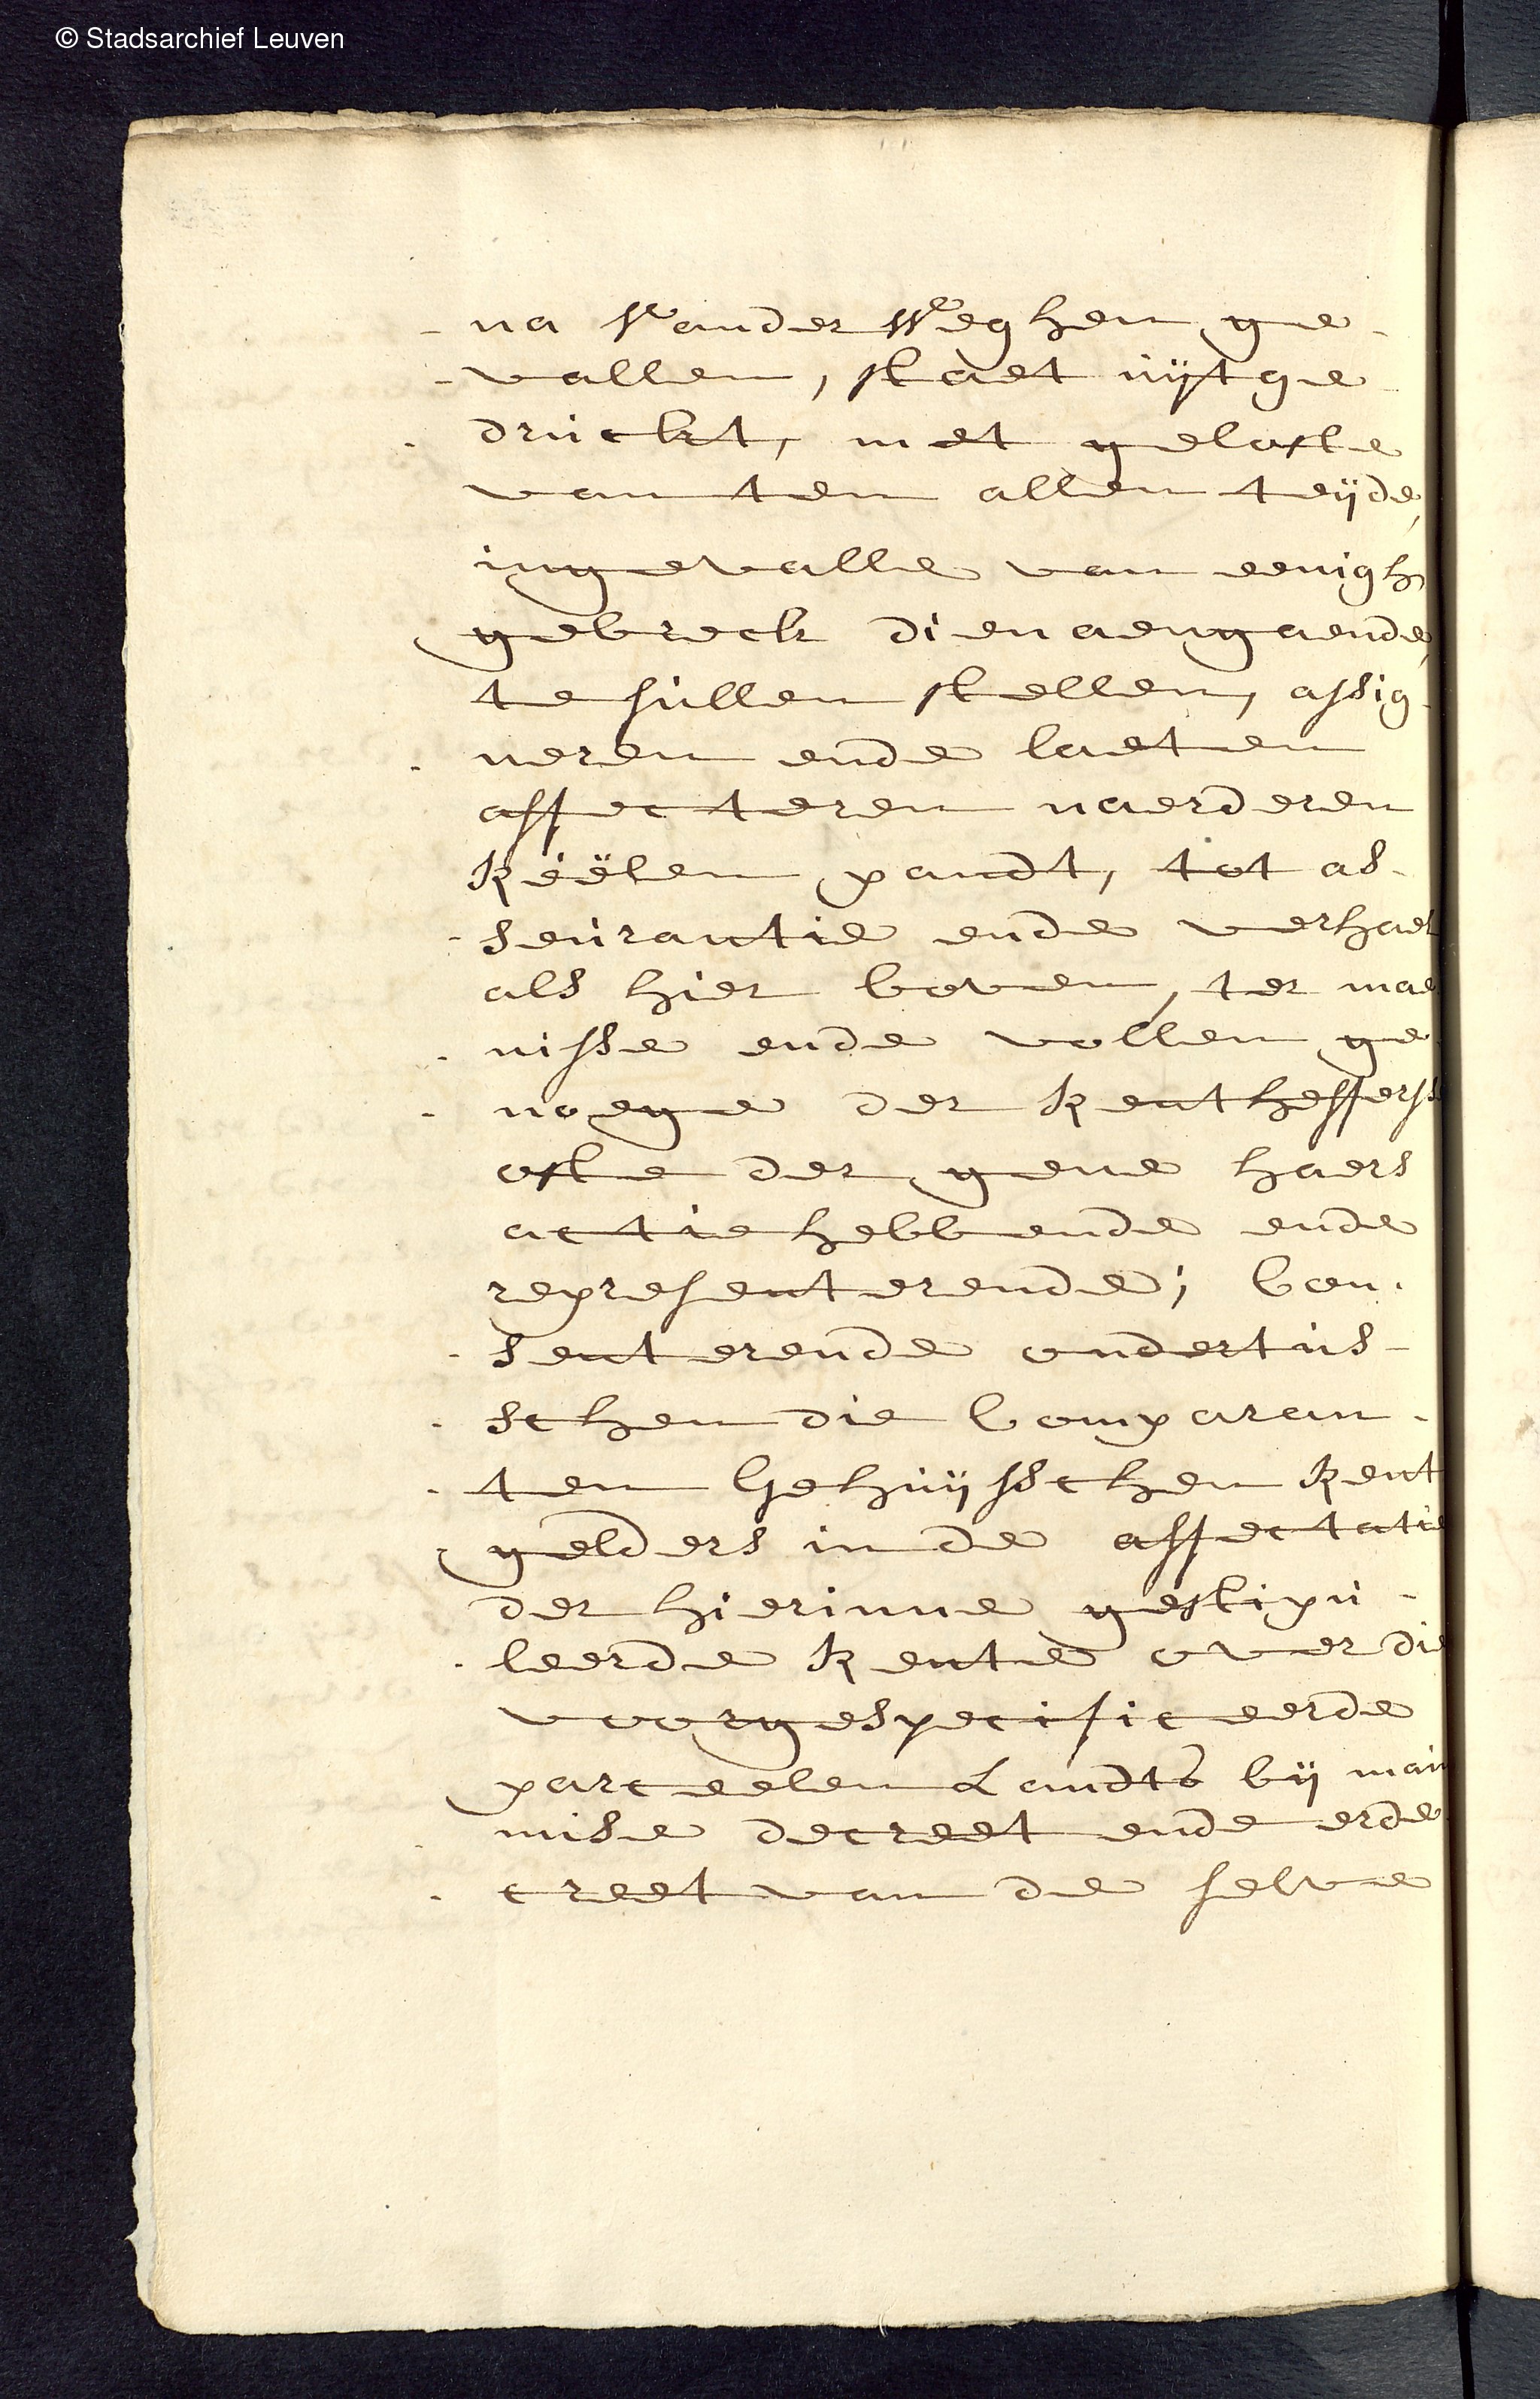 © Stadsarchief Leuven
- na Vander Weghen ge-
- vallen, staet uÿtge
- druckt, met gelofte
van ten allen teÿde,
ingevalle van eenigh
gebreck dienaengaende,
te sullen stellen, assig-
- neren ende laeten
affecteren naerderen
Réëlen pandt, tot as-
- seurantie ende verhael
als hier boven, ter mae
- nisse ende vollen ge
- noege der Rentheffersse
ofte der gene haers
actie hebbende ende
representerende; Con-
- senterende ondertus-
- schen die Comparan-
- ten Gehuÿsschen Rent
- gelders in de affectatie
der hierinne gestipu-
- leerde Rente over die
voorgespecificeerde
parceelen Landts bÿ main
- mise decreet ende erde
- creet van de selve